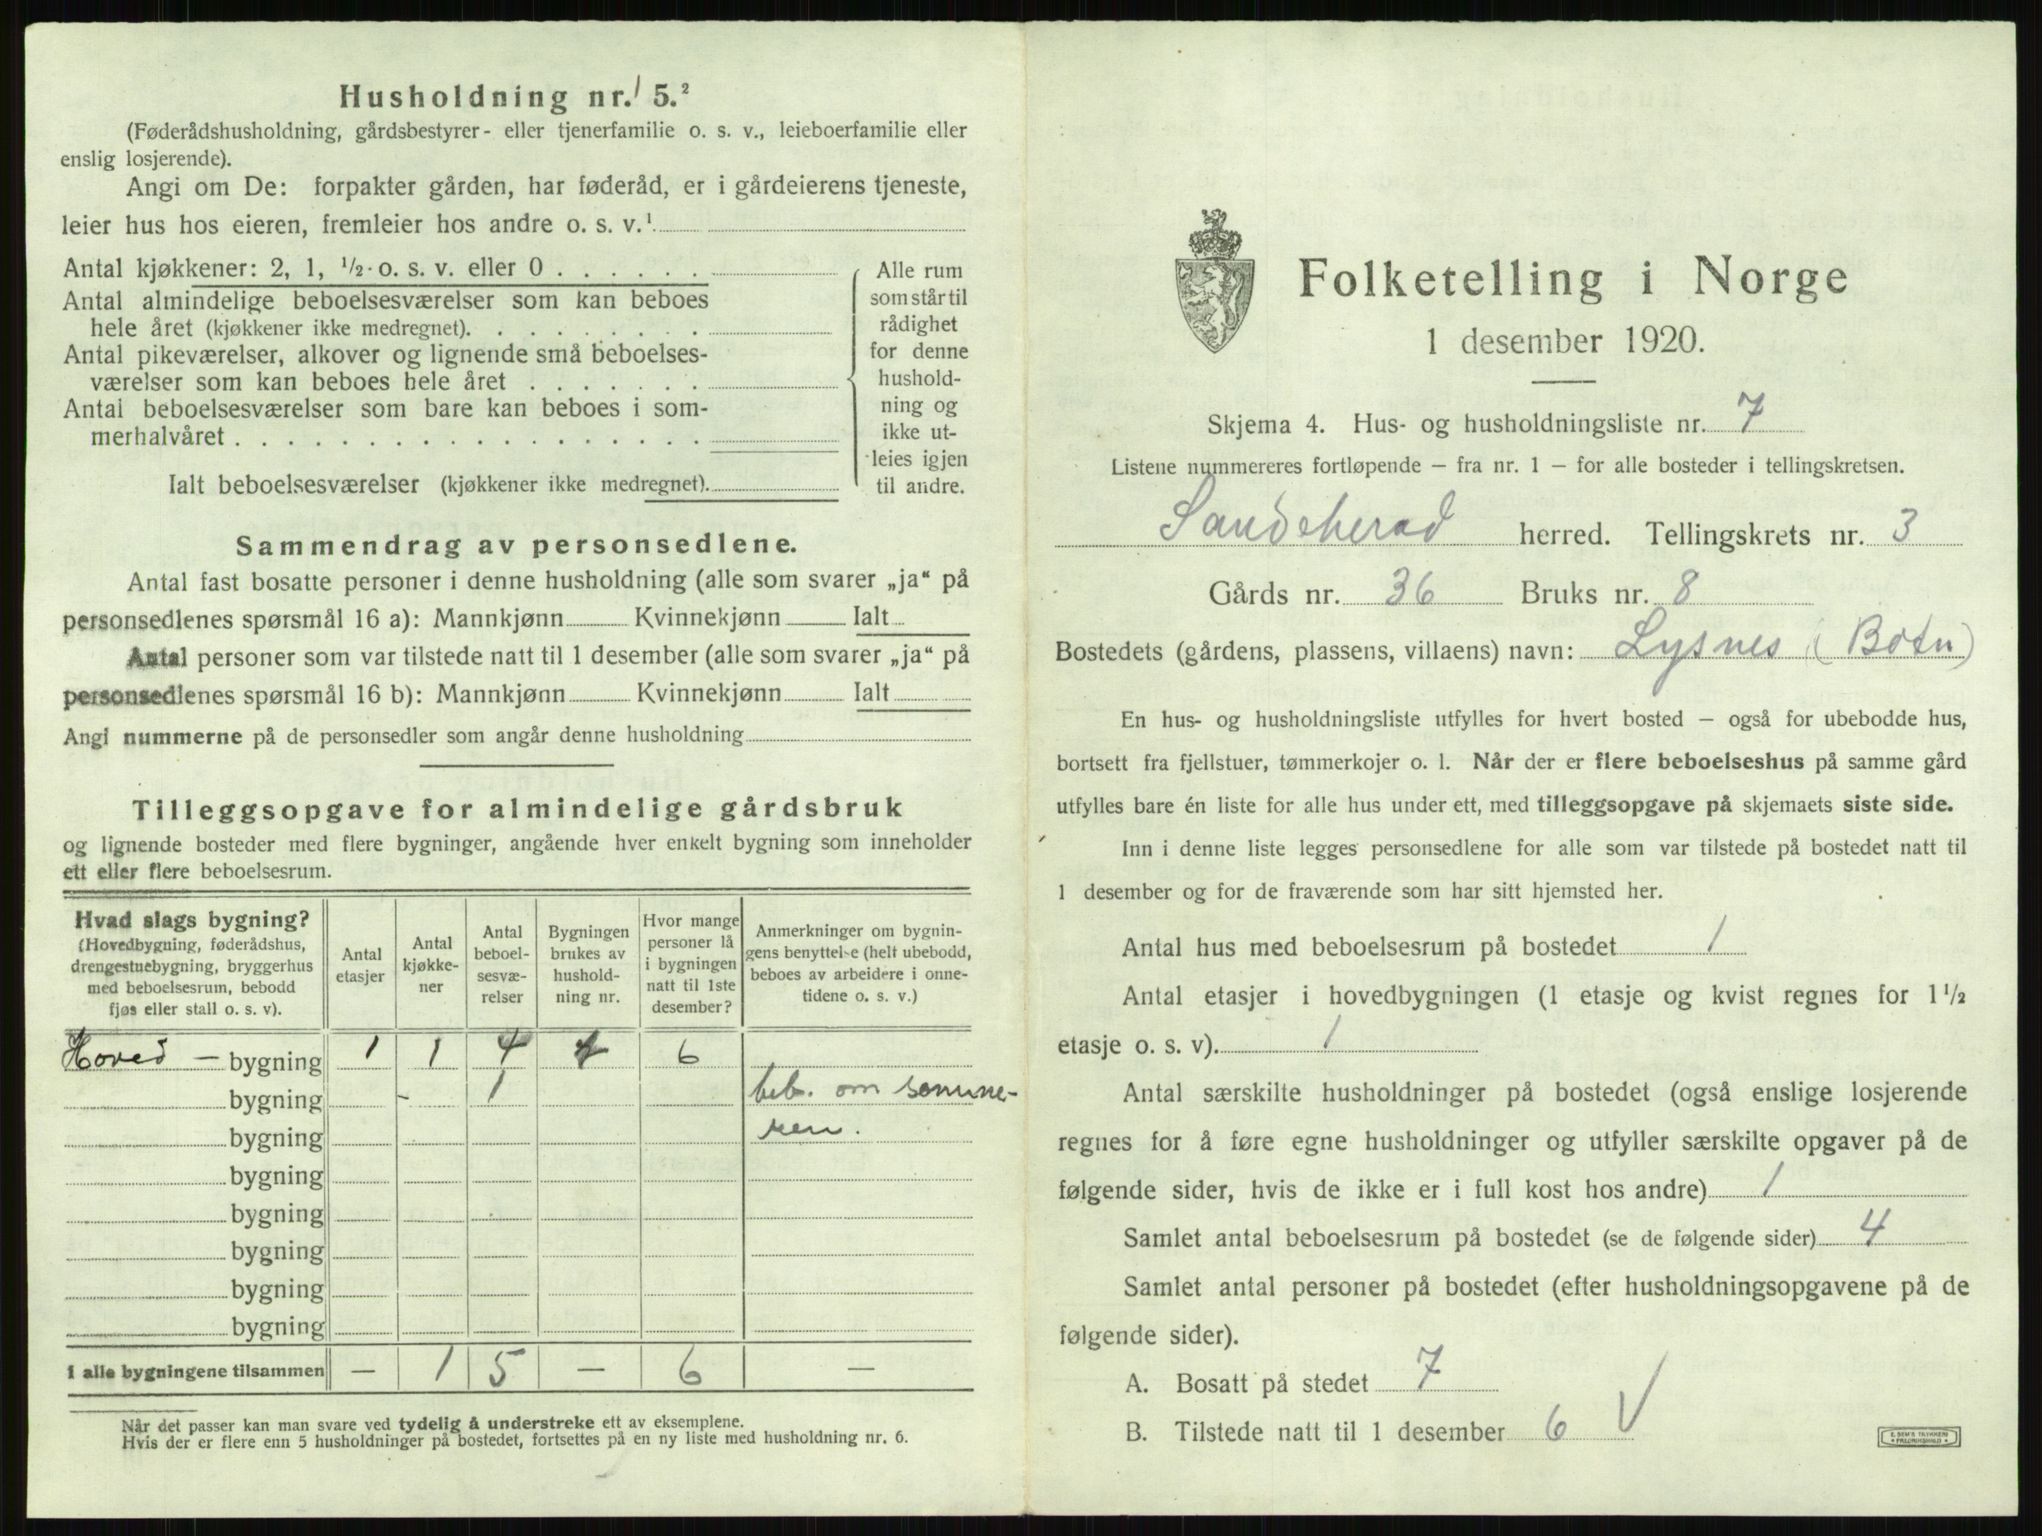 Husholdning nr. 5.²
(Føderådshusholdning, gårdsbestyrer- eller tjenerfamilie o. s. v., leieboerfamilie eller
enslig losjerende).
Angi om De: forpakter gården, har føderåd, er i gårdeierens tjeneste,
leier hus hos eieren, fremleier hos andre o. s. v.¹
Antal kjøkkener: 2, 1, ½ o. s. v. eller 0 . . . . . .
Antal almindelige beboelsesværelser som kan beboes
hele året (kjøkkener ikke medregnet). . . . . . . . .
Antal pikeværelser, alkover og lignende små beboelses-
værelser som kan beboes hele året . . . . . . .
Antal beboelsesværelser som bare kan beboes i som-
merhalvåret . . . . . . . . . . . . . . . . . .
Ialt beboelsesværelser (kjøkkener ikke medregnet).
Alle rum
som står til
rådighet
for denne
hushold-
ning og
ikke ut-
leies igjen
til andre.
Sammendrag av personsedlene.
Antal fast bosatte personer i denne husholdning (alle som svarer „ja“ på
personsedlenes spørsmål 16 a): Mannkjønn Kvinnekjønn Ialt
Antal personer som var tilstede natt til 1 desember (alle som svarer „ja“ på
personsedlenes spørsmål 16 b): Mannkjønn Kvinnekjønn Ialt
Angi nummerne på de personsedler som angår denne husholdning
Tilleggsopgave for almindelige gårdsbruk
og lignende bosteder med flere bygninger, angående hver enkelt bygning som inneholder
ett eller flere beboelsesrum.
Hvad slags bygning?
(Hovedbygning, føderådshus,
drengestuebygning, bryggerhus
med beboelsesrum, bebodd
fjøs eller stall o. s. v).
Antal
etasjer
Antal
kjøkke-
ner
Antal
beboel-
sesvæ-
relser
Bygningen
brukes av
hushold-
ning nr.
Hvor mange
personer lå
i bygningen
natt til 1ste
desember?
Anmerkninger om bygnin-
gens benyttelse (helt ubebodd,
beboes av arbeidere i onne-
tidene o. s. v.)
Hoved - bygning 1 1 4 1 6
bygning - 1 beb. om somme-
bygning ren.
bygning
bygning
bygning
bygning
bygning
I alle bygningene tilsammen — 1 5 — 6 —
Når det passer kan man svare ved tydelig å understreke ett av eksemplene.
Hvis der er flere enn 5 husholdninger på bostedet, fortsettes på en ny liste med husholdning nr. 6.
Folketelling i Norge
1 desember 1920.
Skjema 4. Hus- og husholdningsliste nr. 7
Listene nummereres fortløpende – fra nr. 1 – for alle bosteder i tellingskretsen.
Sandeherad herred. Tellingskrets nr. 3
Gårds nr. 36 Bruks nr. 8
Bostedets (gårdens, plassens, villaens) navn: Lysnes (Botn)
En hus- og husholdningsliste utfylles for hvert bosted – også for ubebodde hus,
bortsett fra fjellstuer, tømmerkojer o. l. Når der er flere beboelseshus på samme gård
utfylles bare én liste for alle hus under ett, med tilleggsopgave på skjemaets siste side.
Inn i denne liste legges personsedlene for alle som var tilstede på bostedet natt til
1 desember og for de fraværende som har sitt hjemsted her.
Antal hus med beboelsesrum på bostedet 1
Antal etasjer i hovedbygningen (1 etasje og kvist regnes for 1½
etasje o. s. v). 1
Antal særskilte husholdninger på bostedet (også enslige losjerende
regnes for å føre egne husholdninger og utfyller særskilte opgaver på de
følgende sider, hvis de ikke er i full kost hos andre) 1
Samlet antal beboelsesrum på bostedet (se de følgende sider) 4
Samlet antal personer på bostedet (efter husholdningsopgavene på de
følgende sider).
A. Bosatt på stedet 7
B. Tilstede natt til 1 desember 6 V
E. SEM'S TRYKKERI
• FREDRIKSHALD •